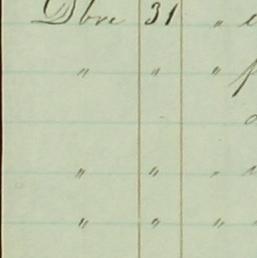 Dbre 31 "
" " "
" " "
" " "